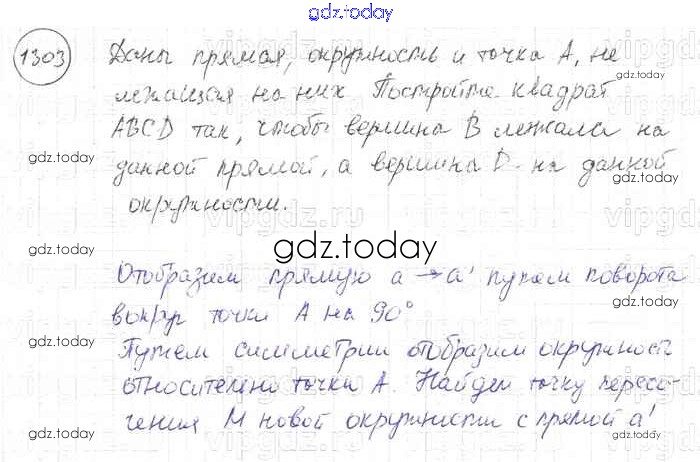 gdz.today
1303 Даны прямая, окружность и точка А, не
лежащая на них Постройте квадрат
ABCD так, чтобы вершина В лежала на
данной прямой, а вершина D - на данной
окружности.
gdz.today
Отобразим прямую a → a' путем поворота
вокруг точки А на 90°
Путем симметрии отобразим окружность
относительно точки А. Найдем точку пересе-
чения М новой окружности с прямой a'
gdz.today
gdz.today
gdz.today
gdz.today
gdz.today
gdz.today
gdz.today
gdz.today
gdz.today